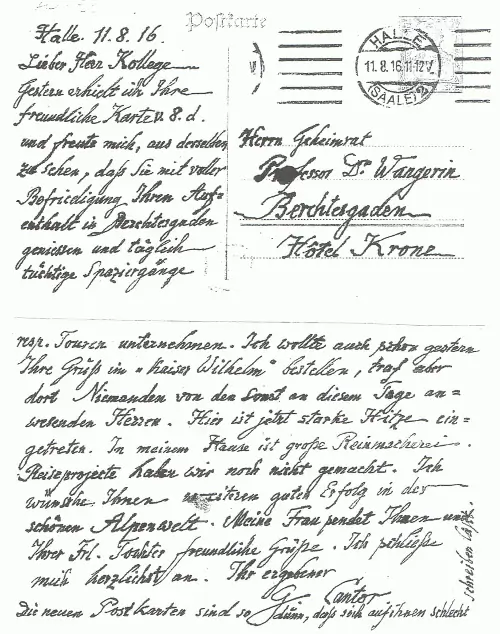 Postkarte
Halle. 11.8.16.
Lieber Herr Kollege
Gestern erhielt ich Ihre
freundliche Karte v. 8. d.
und freute mich, aus derselben
zu sehen, daß Sie mit voller
Befriedigung Ihren Auf=
enthalt in Berchtesgaden
geniessen und täglich
tüchtige Spaziergänge
HALLE
11.8.16.11-12V
(SAALE) 2
Herrn Geheimrat
Professor Dr Wangerin
Berchtesgaden
Hôtel Krone
resp. Touren unternehmen. Ich wollte auch schon gestern
Ihre Grüße im „Kaiser Wilhelm" bestellen, traf aber
dort Niemanden von den sonst an diesem Tage an=
wesenden Herren. Hier ist jetzt starke Hitze ein=
getreten. In meinem Hause ist große Reinmacherei.
Reiseprojecte haben wir noch nicht gemacht. Ich
wünsche Ihnen weiteren guten Erfolg in der
schönen Alpenwelt. Meine Frau sendet Ihnen und
Ihrer Frl. Tochter freundliche Grüße. Ich schließe
mich herzlichst an. Ihr ergebener
G Cantor
Die neuen Postkarten sind so dünn, daß sich auf ihnen schlecht
schreiben läßt.